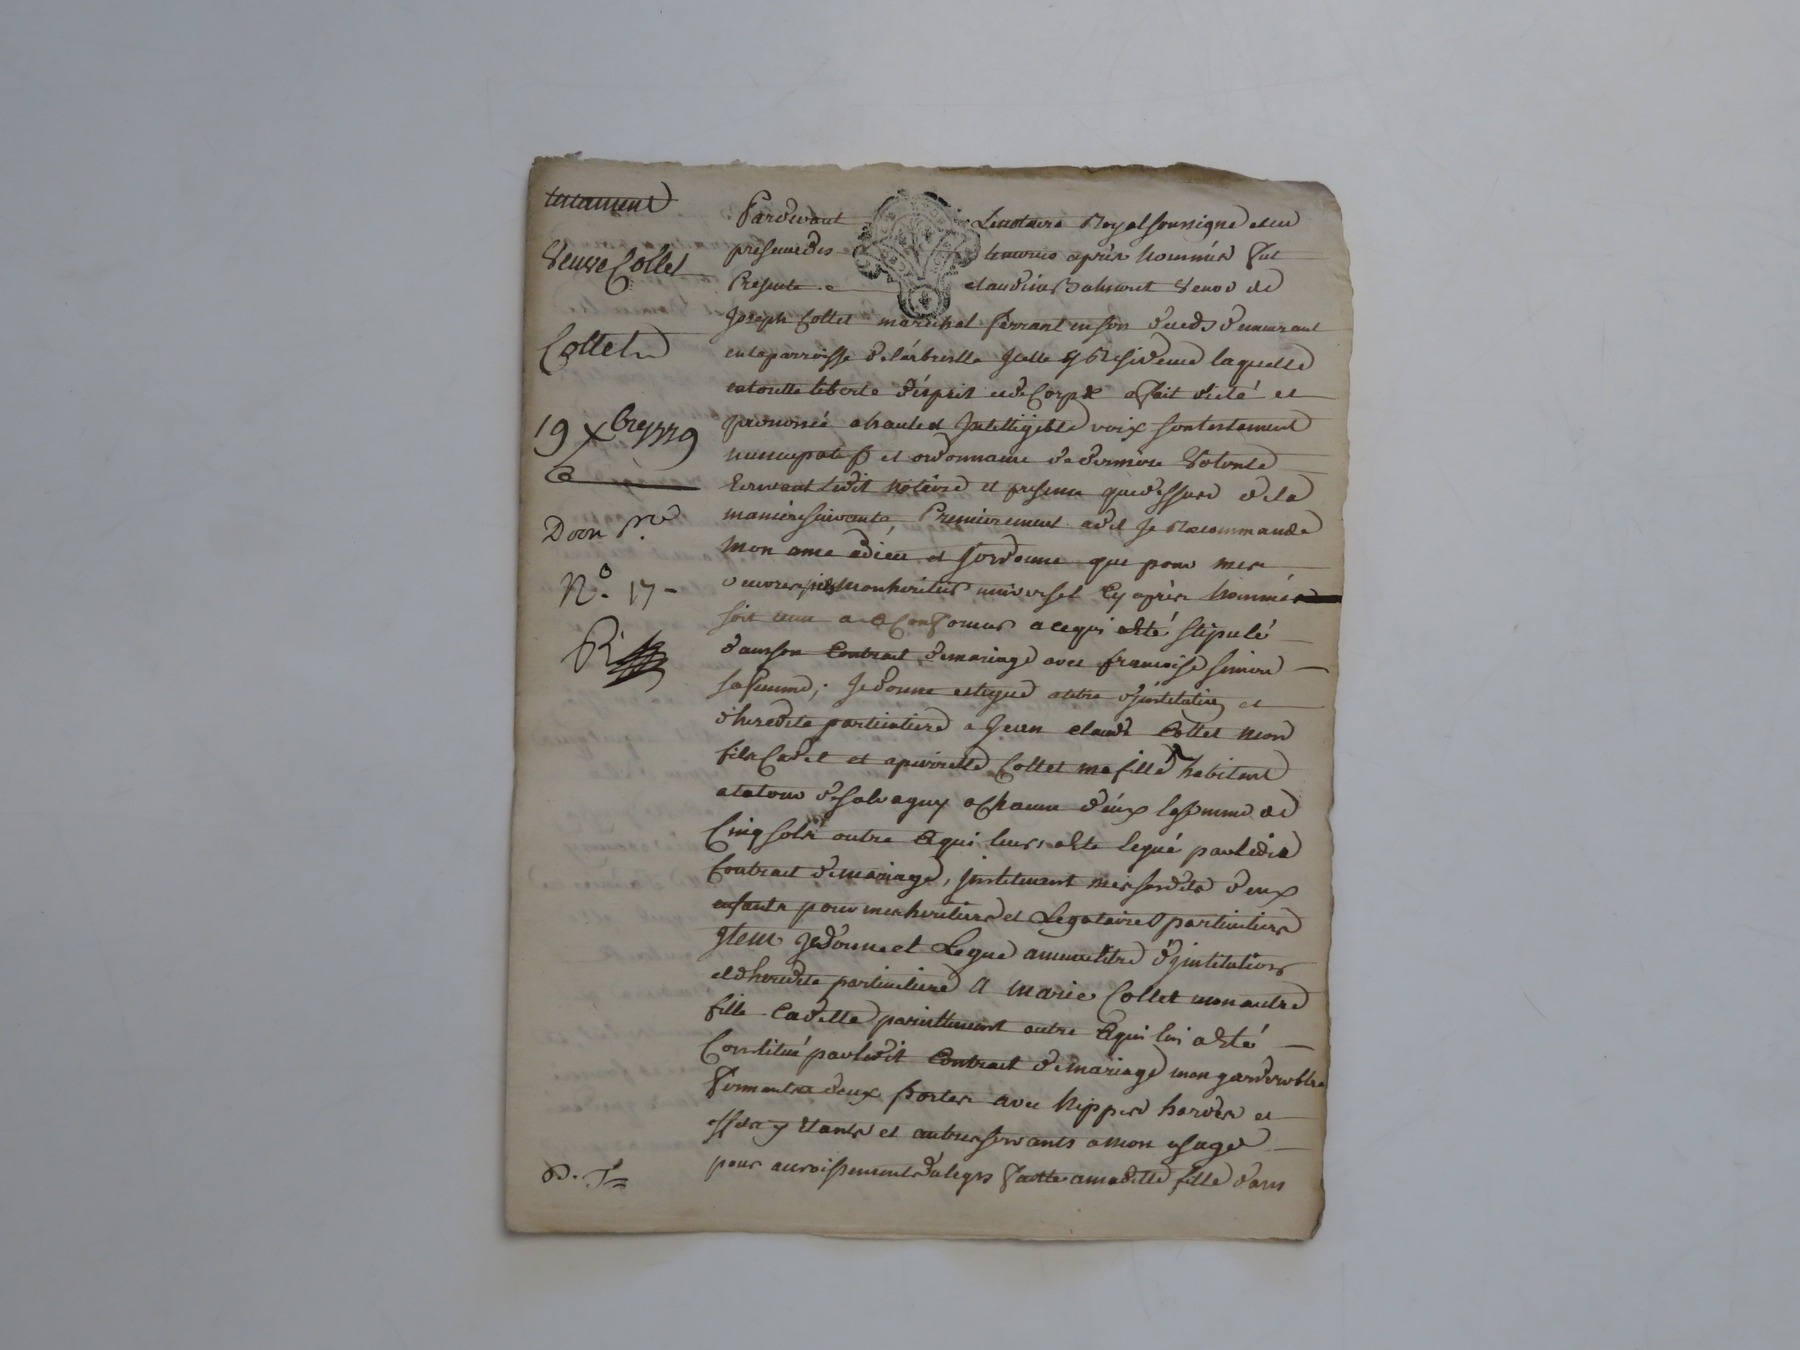 testament
veuve Collet
Collet
19 xbre 1779
Doon nre
No. 17
Pardevant Le notaire Royal soussigné et en
presence des temoins après nommés fut
Presente claudine veuve de
Joseph Collet marechal ferrant en son vivant demeurant
en la parroisse de l'arbresle Icelle y Residente laquelle
en toutte liberté d'esprit et de Corps a fait dicté et
prononcé a haute et Intelligible voix son testament
nuncupatif et ordonnance de derniere Volonté
Recevant ledit Notaire et presence que dessus de la
maniere suivante, Premierement a dit Je Recommande
mon ame a dieu et J'ordonne que pour mes
oeuvres pies mon heritier universel Cy après Nommé
soit tenu de se Conformer a ce qui a été stipulé
dans son Contrat de mariage avec francoise simon
sa femme; Je donne et legue a titre d'jnstitution et
d'heredité particuliere a Jean claude Collet mon
fils Cadet et a pierrette Collet ma fille habitant
a la tour de salvagny a Chacun d'eux la somme de
Cinq sols outre Ce qui leurs a été legué par ledit
Contrat de mariage, jnstituant mes susdits deux
enfants pour mes heritiers et Legataires particuliers
Item Je donne et Legue a meme titre d'jnstitution
et d'heredité particuliere A Marie Collet mon autre
fille Cadette pareillement outre Ce qui lui a été
Constitué par ledit Contrat de mariage mon garderobbe
fermant a deux portes avec Nippes hardes et
effets y étants et autres servants a mon usage
pour accroissement de legs faitte a ma ditte fille dans